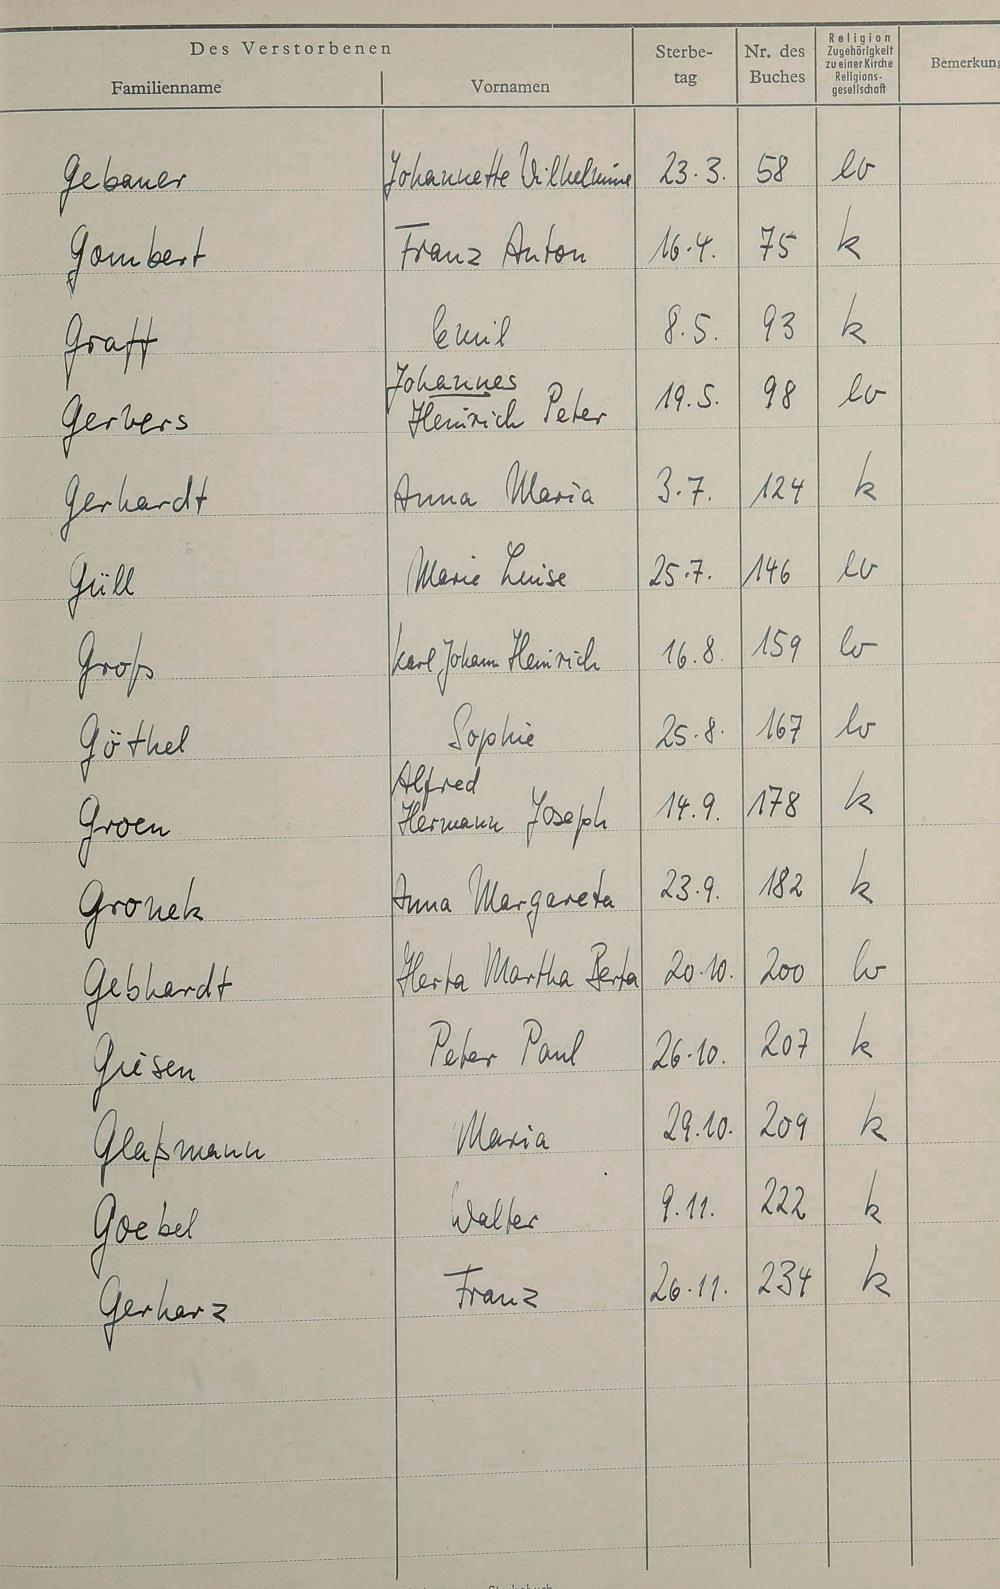 Des Verstorbenen
Familienname Vornamen Sterbe-
tag Nr. des
Buches Religion
Zugehörigkeit
zu einer Kirche
Religions-
gesellschaft Bemerkung
Gebauer Johannette Wilhelmine 23.3. 58 ev
Gombert Franz Anton 16.4. 75 k
Graff Emil 8.5. 93 k
Johannes
Gervers Heinrich Peter 19.5. 98 ev
Gerhardt Anna Maria 3.7. 124 k
Güll Marie Luise 25.7. 146 ev
Groß Karl Johann Heinrich 16.8. 159 ev
Göthel Sophie 25.8. 167 ev
Alfred
Groen Hermann Joseph 14.9. 178 k
Gronek Anna Margareta 23.9. 182 k
Gebhardt Herta Martha Berta 20.10. 200 ev
Giesen Peter Paul 26.10. 207 k
Glaßmann Maria 29.10. 209 k
Goebel Walter 9.11. 222 k
Gerharz Franz 26.11. 234 k